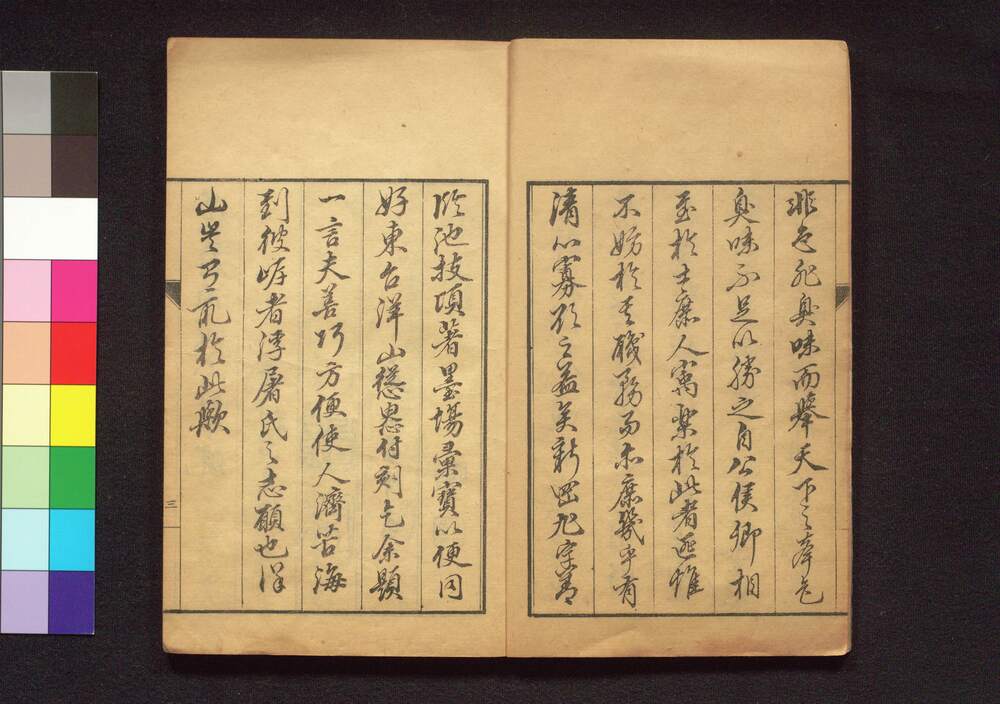 非色非臭味而舉天下之奉色
臭味不足以勝之自公侯卿相
至於士庶人寓樂於此者匪惟
不妨於其職務而亦庶幾乎有
清心寡欲之益矣新岡旭宇善
臨池技頃著墨場彙寶以便同
好東台洋山慫慂付刻乞余題
一言夫善巧方便使人濟苦海
到彼岸者浮屠氏之志願也洋
山豈有取於此歟
三